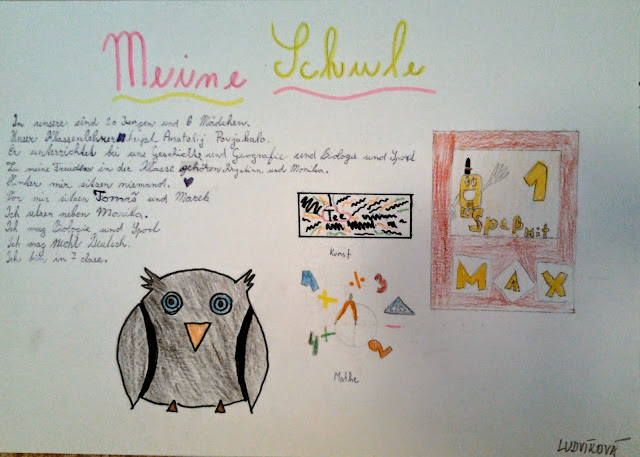 Meine Schule
In unsere sind 20 Jungen und 6 Mädchen.
Unser Klassenlehrer Anatolij Povjakalo.
Er unterrichtet bei uns Geschichte und Geografie und Biologie und Sport
Zu meine in der Klasse gehören Krystina und Monika.
Hinter mir sitzen niemand.
Vor mir sitzen Tomáš und Marek
Ich sitzen neben Monika.
Ich mag Biologie und Sport
Ich mag nicht Deutsch.
Ich bin in 7 clase.
Tee
Kunst
1
Spaß mit
MAX
1 ÷ 3
+
4 + 2
Mathe
LUDVÍKOVÁ